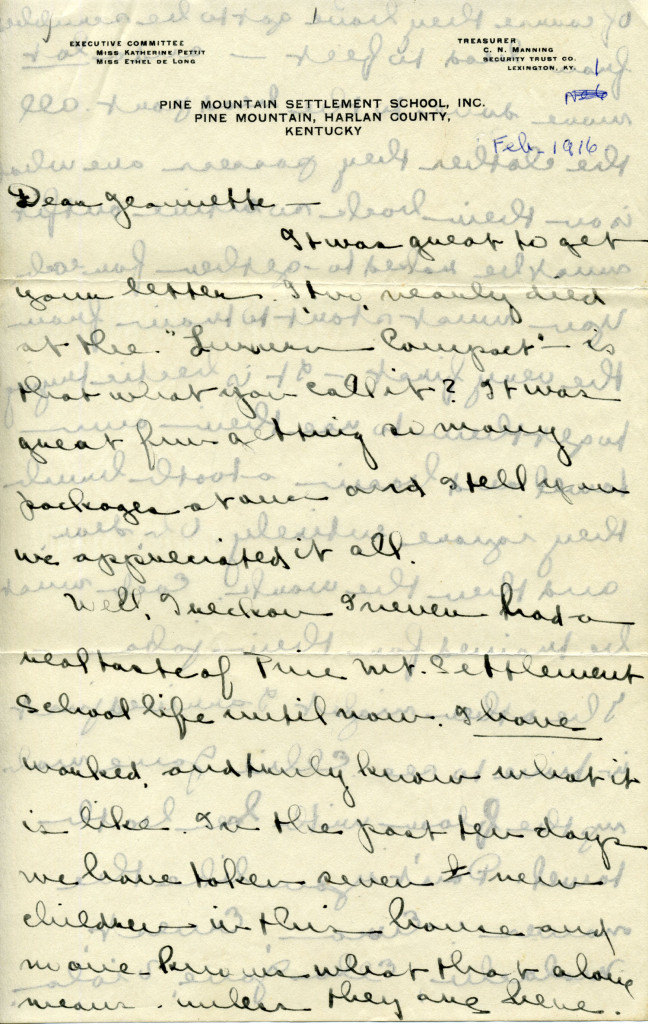 1
EXECUTIVE COMMITTEE
MISS KATHERINE PETTIT
MISS ETHEL DE LONG
TREASURER
C. N. MANNING
SECURITY TRUST CO.
LEXINGTON, KY.
1
PINE MOUNTAIN SETTLEMENT SCHOOL, INC.
PINE MOUNTAIN, HARLAN COUNTY,
KENTUCKY
Feb. 1916
Dear Jeannette —
It was great to get
your letter. I, too, nearly died
at the " Compact" — is
that what you call it? It was
great fun getting so many
packages at once and I tell you
we appreciated it all.
Well, I reckon I never had a
real taste of Pine Mt. Settlement
School life until now. I have
worked, and truly know what it
is like. In the past ten days
we have taken seven new
children in this house and
no one knows what that alone
means unless they are here.